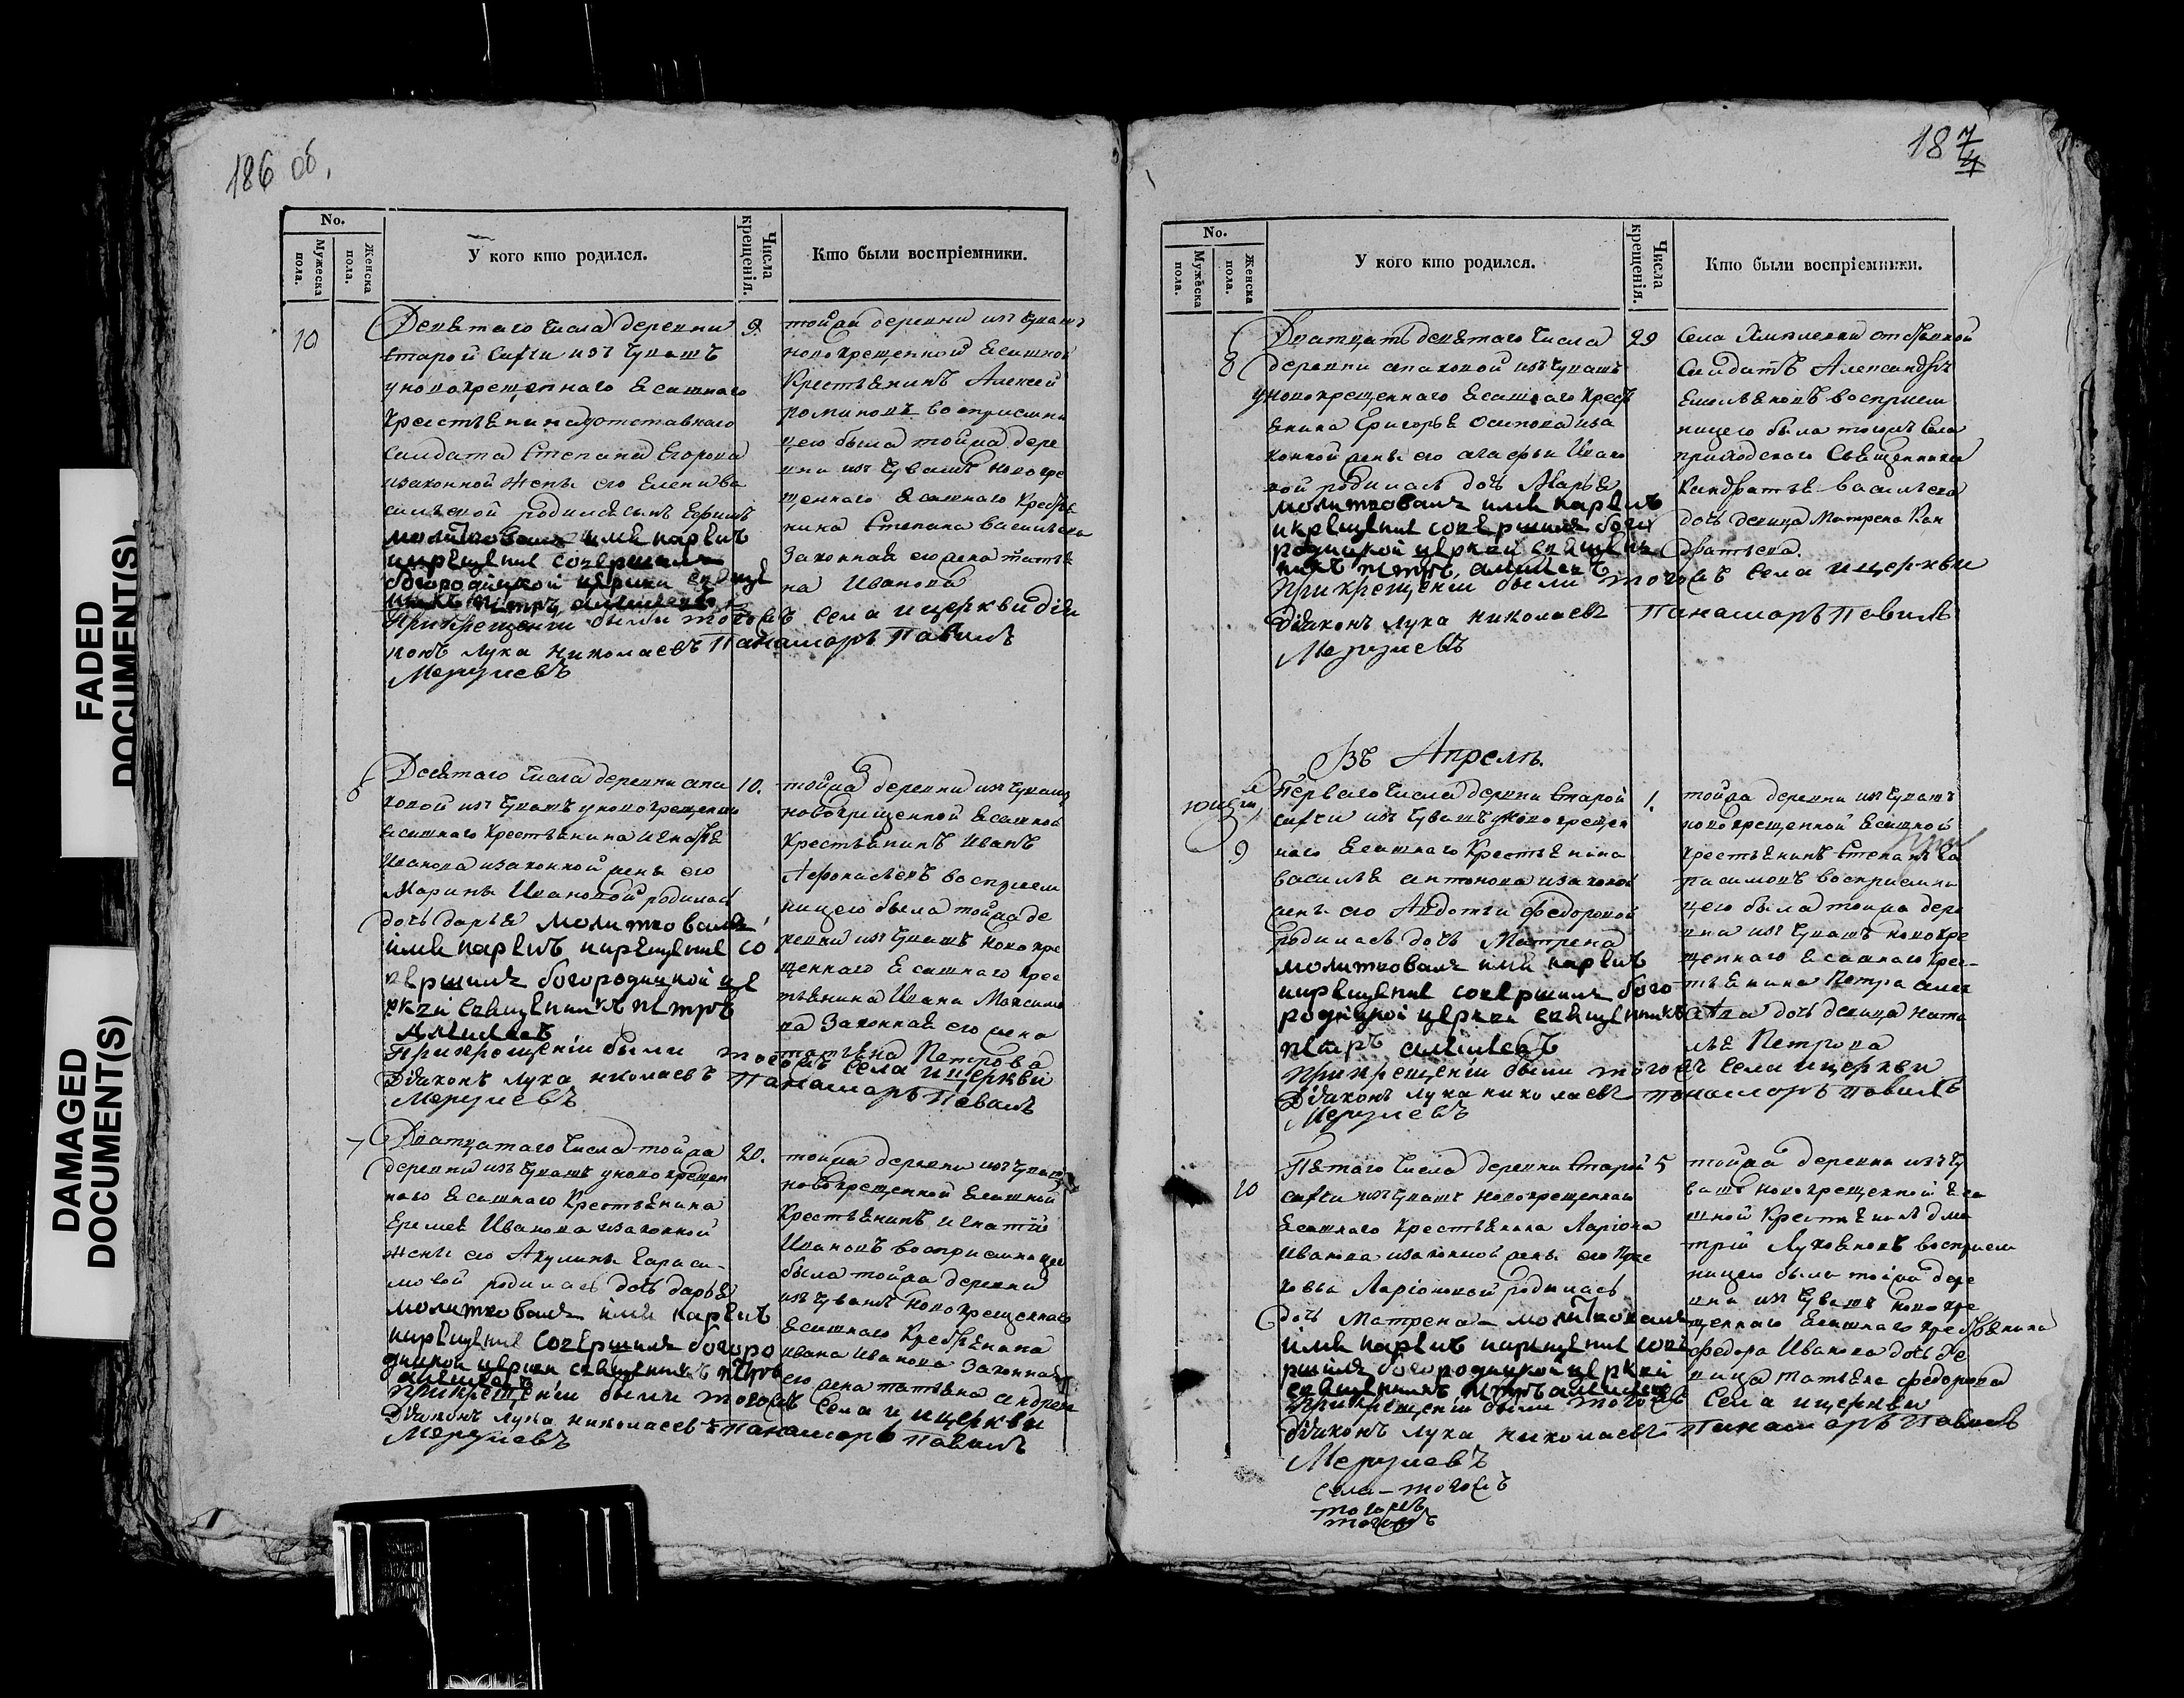 FADED
DOCUMENT(S)
DAMAGED
DOCUMENT(S)
186 об.
No.
Мужеска пола.
Женска пола.
У кого кто родился.
Числа крещенія.
Кто были воспріемники.
10
Девятаго числа деревни
старой из чувашъ
у новокрещеннаго ясашнаго
отставнаго
салдата Степана Егорова
изаконной жены его Елены Ва
сильевой родился сынъ
молитвовалъ имя нареклъ
икрещение совершилъ
богородицкой церкви священ
никъ петръ алексеевъ
прикрещении были тогожъ села ицеркви диа
конъ лука николаевъ Панамарь Павилъ
Меркулевъ
9.
тойжа деревни изъ чувашъ
новокрещенной ясашной
крестьянинъ Алексей
восприемни
цею была тойжа дере
вни изъ чувашъ новокре
щеннаго ясашнаго крестья
нина Степана васильева
законная его жена татья
на Иванова
6
Десятаго числа деревни
изъ чувашъ у новокрещеннаго
ясашнаго крестьянина
Иванова изаконной жены его
Марины Ивановой родилась
дочь дарья молитвовалъ
имя нареклъ икрещение со
вершилъ богородицкой це
ркви священникъ петръ
алексеевъ
Прикрещении были тогожъ села ицеркви
диаконъ лука николаевъ Панамарь Павилъ
Меркулевъ
10.
тойжа деревни изъ чувашъ
новокрещенной ясашной
крестьянинъ Иванъ
восприем
ницею была тойжа де
ревни изъ чувашъ новокре
щеннаго ясашнаго крес
тьянина Ивана Максимо
ва законная его жена
татьяна Петрова
7
Дватцатаго числа тойжа
деревни изъ чувашъ у новокрещен
наго ясашнаго крестьянина
Еремея Иванова изаконной
жены его Акулины Гараси-
мовой родилась дочь дарья
молитвовалъ имя нареклъ
икрещение совершилъ богоро
дицкой церкви священникъ петръ
алексеевъ
прикрещении были тогожъ села и ицеркви
Диаконъ лука николаевъ Панамарь Павилъ
Меркулевъ
20.
тойжа деревни изъ чувашъ
новокрещенной ясашной
крестьянинъ игнатий
Ивановъ восприемницею
была тойжа деревни
изъ чувашъ новокрещеннаго
ясашнаго крестьянина
ивана Иванова законная
его жена татьяна андреева
187
4
No.
Мужеска пола.
Женска пола.
У кого кто родился.
Числа крещенія.
Кто были воспріемники.
8
Дватцать девятаго числа
деревни изъ чувашъ
у новокрещеннаго ясашнаго крест
янина Григорья Осипова иза
конной жены его агафьи Ивано
вой родилась дочь Марья
молитвовалъ имя нареклъ
икрещение совершилъ бого
родицкой церкви священ
никъ петръ алексеевъ
прикрещении были тогожъ села ицеркви
диаконъ лука николаевъ Панамарь Павилъ
Меркулевъ
29
Села отставной
салдатъ Александръ
Емельяновъ восприем
ницею была тогожъ села
приходскаго священника
Кандратья васильева
дочь девица Матрена Кан
дратьева.
Въ Апреле.
9
Перваго числа деревни старой
изъ чувашъ у новокрещен
наго ясашнаго крестьянина
василья антонова изаконой
жены его Авдотьи федоровой
родилась дочь Матрена
молитвовалъ имя нареклъ
икрещение совершилъ бого
родицкой церкви священникъ
петръ алексеевъ
прикрещении были тогожъ села ицеркви
Диаконъ лука николаевъ панамарь павилъ
Меркулевъ
1.
тойжа деревни изъ чувашъ
новокрещенной ясашной
крестьянинъ Степанъ Га
расимовъ восприемни
цею была тойжа дере
вни изъ чувашъ новокре
щеннаго ясашнаго крес-
тьянина Петра алек
дочь девица ната
лья Петрова
10
Пятаго числа деревни старой
изъ чувашъ новокрещеннаго
ясашнаго крестьянина Лариона
Иванова изаконной жены его
Ларионовой родилась
дочь Матрена молитвовалъ
имя нареклъ икрещение сове
ршилъ богородицкой церкви
священникъ петръ алексеевъ
прикрещении были тогожъ села ицеркви
диаконъ лука николаевъ Панамарь Павилъ
Меркулевъ
села - тогожъ
тогожъ
тогожъ
5
тойжа деревни изъ чу
вашъ новокрещенной яса
шной крестьянинъ дми
трий восприем
ницею была тойжа дере
вни изъ чувашъ новокре
щеннаго ясашнаго крестьянина
федора Иванова дочь де
вица татьяна федорова